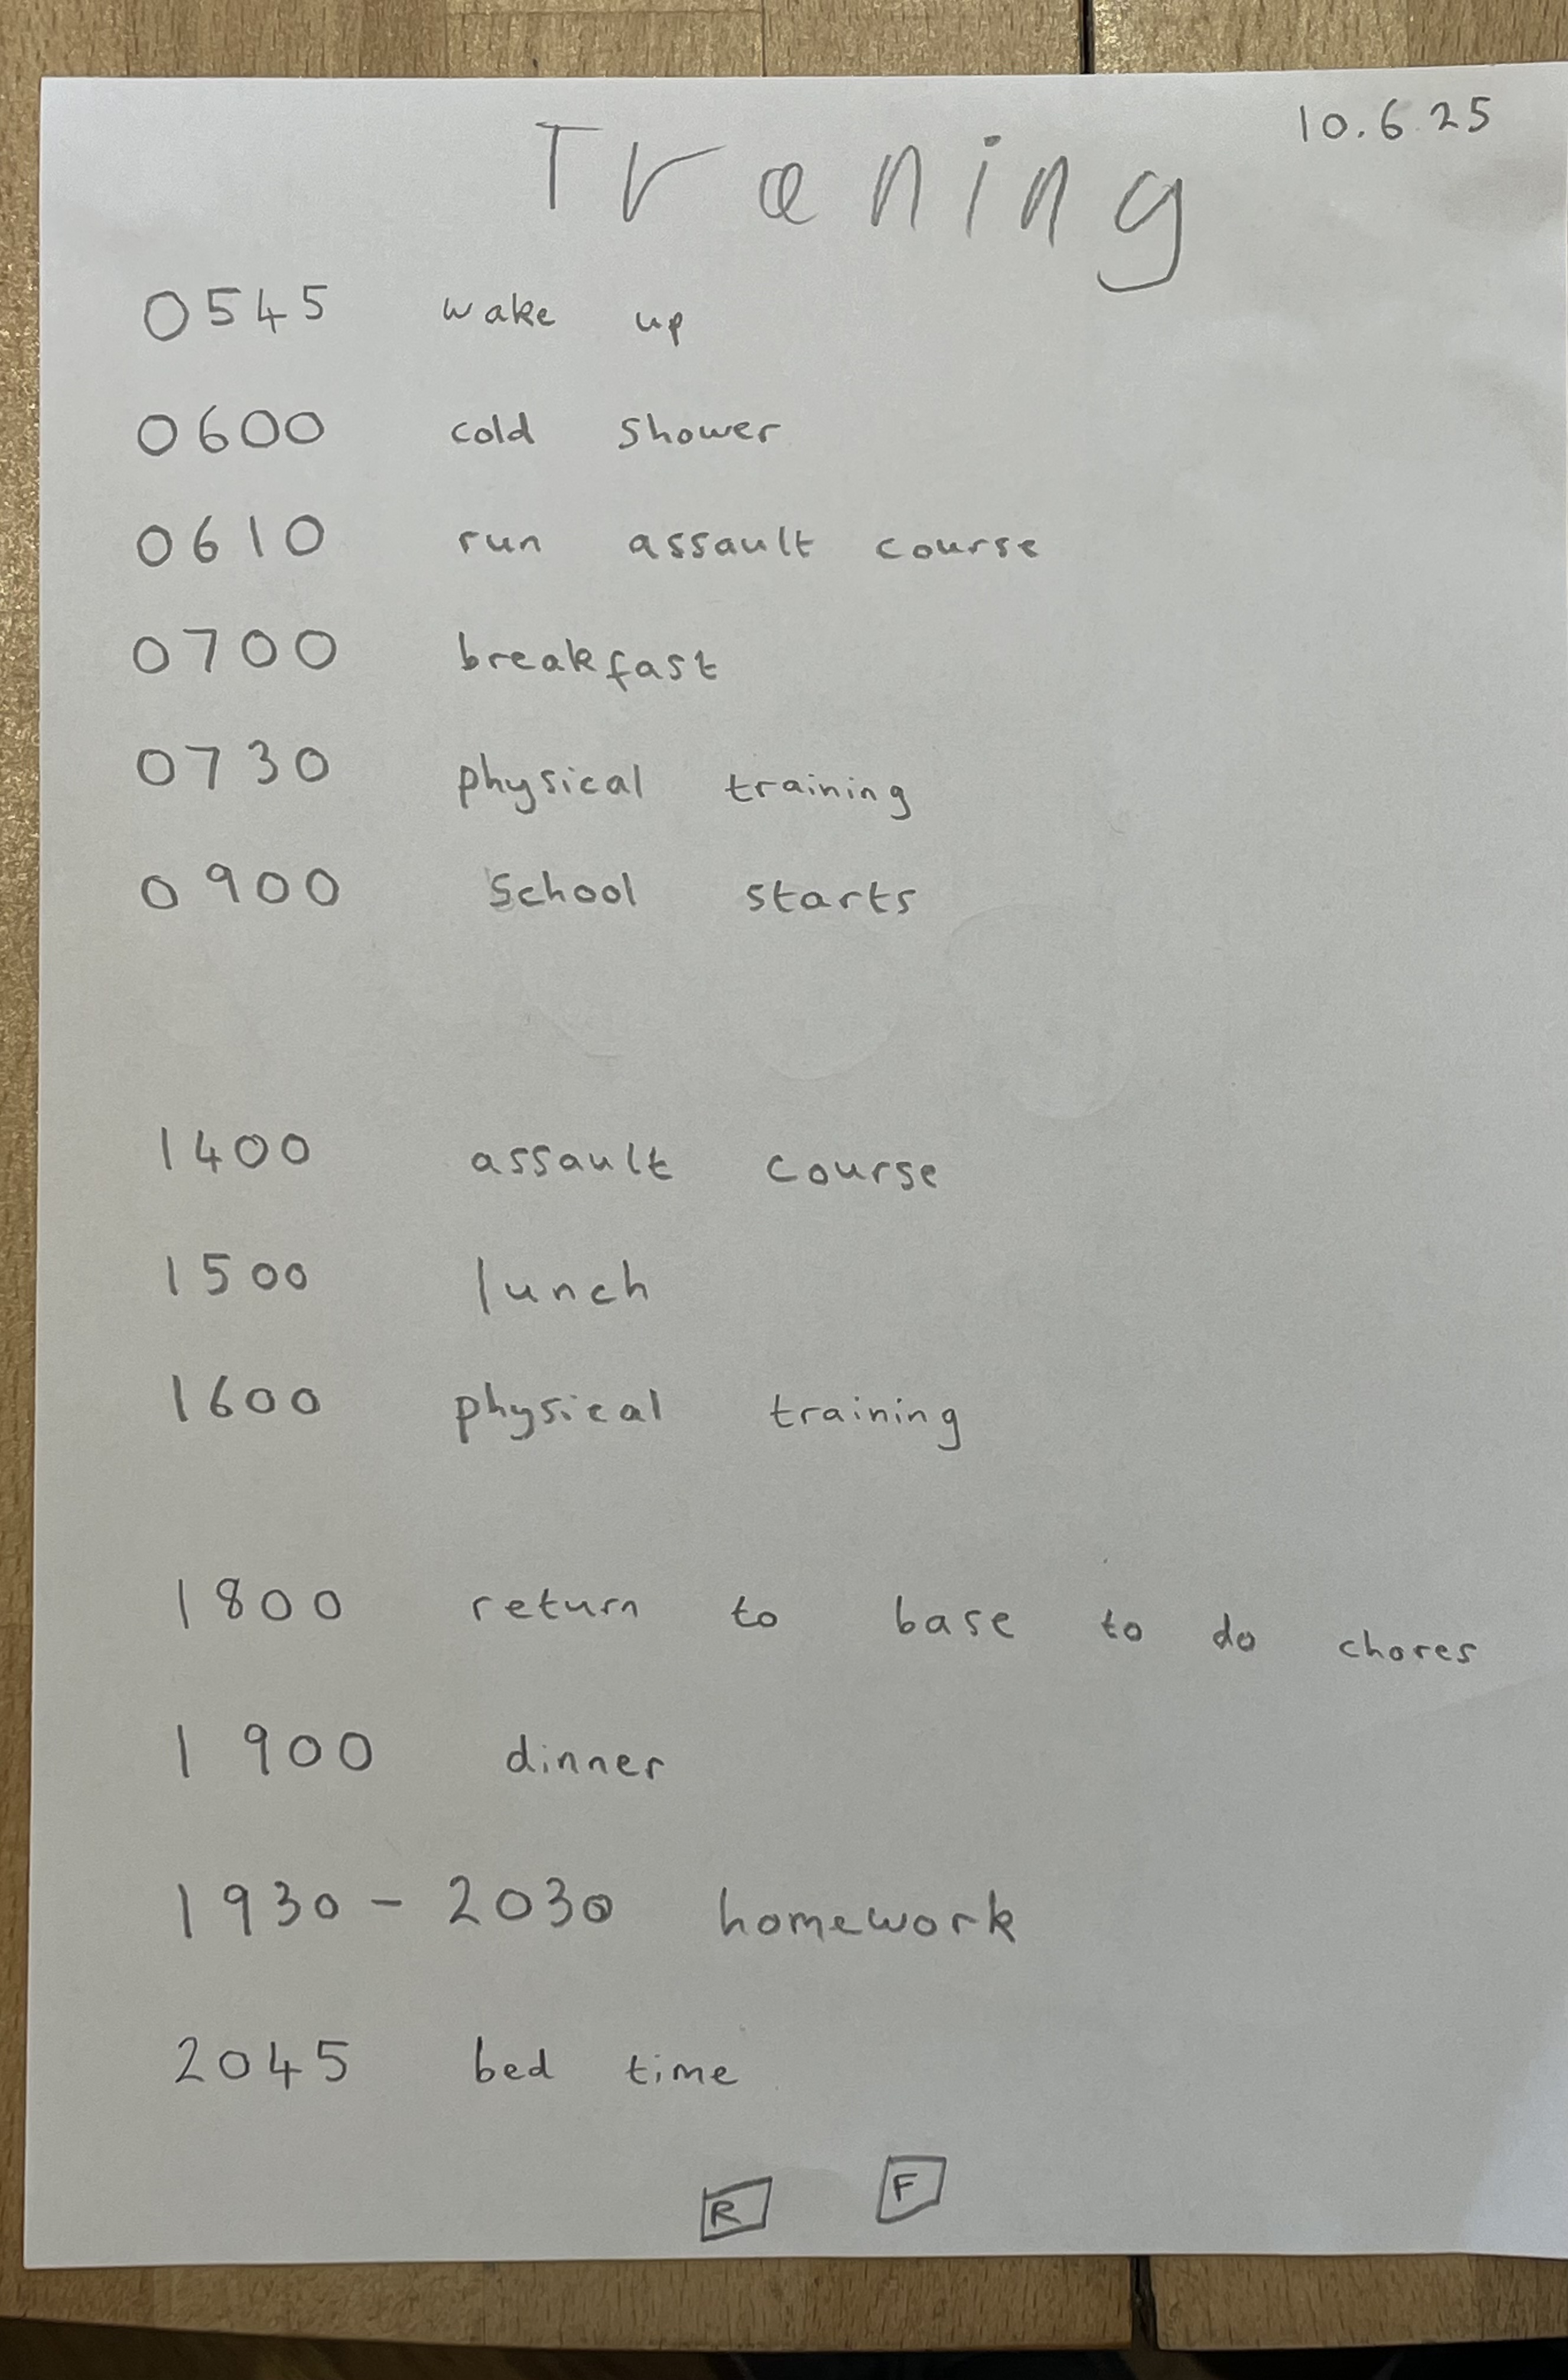 10.6.25
Traning
0545 wake up
0600 cold shower
0610 run assault course
0700 breakfast
0730 physical training
0900 School starts
1400 assault course
1500 lunch
1600 physical training
1800 return to base to do chores
1900 dinner
1930 - 2030 homework
2045 bed time
R F